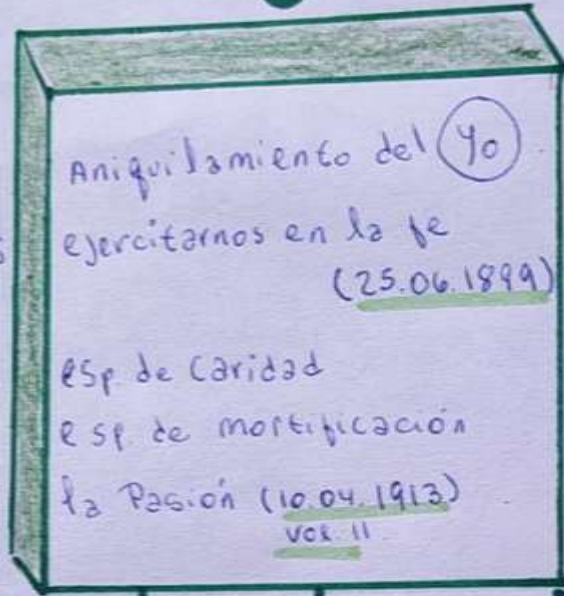 Aniquilamiento del yo
ejercitarnos en la fe
(25.06.1899)
esp. de Caridad
esp. de mortificación
la Pasión (10.04.1913)
Vol. 11